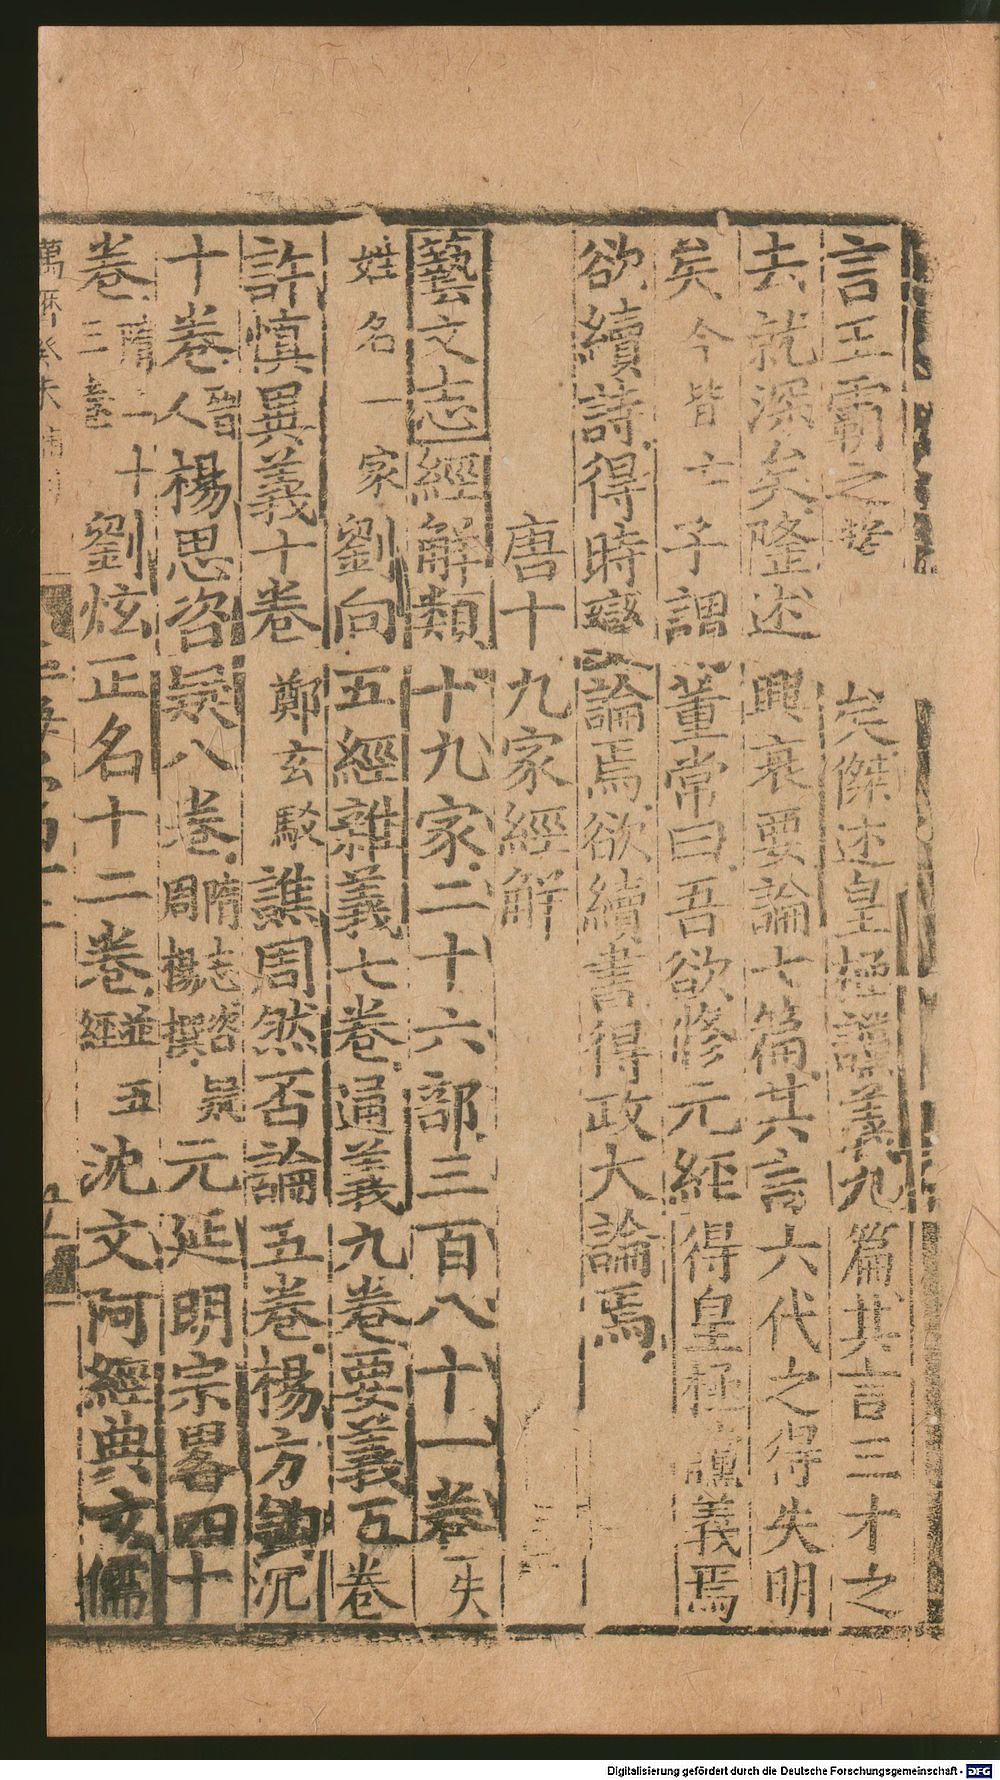 言王霸之 矣傑述皇極讜義九篇其言三才之
去就深矣隆述興衰要論七篇其言六代之得失明
矣今皆亡子謂董常曰吾欲修元經得皇極讜義焉
欲續詩得時變論焉欲續書得政大論焉
唐十九家經解
藝文志經解類十九家二十六部三百八十一卷失
姓名一家劉向五經雜義七卷通義九卷要義五卷
許慎異義十卷鄭玄駁譙周然否論五卷楊方鉤沉
十卷晉人楊思咨疑八卷隋志咨疑周楊撰元延明宗畧四十
卷隋二十三卷劉炫正名十二卷並五經沈文阿經典玄儒
萬曆癸未
Digitalisierung gefördert durch die Deutsche Forschungsgemeinschaft - DFG